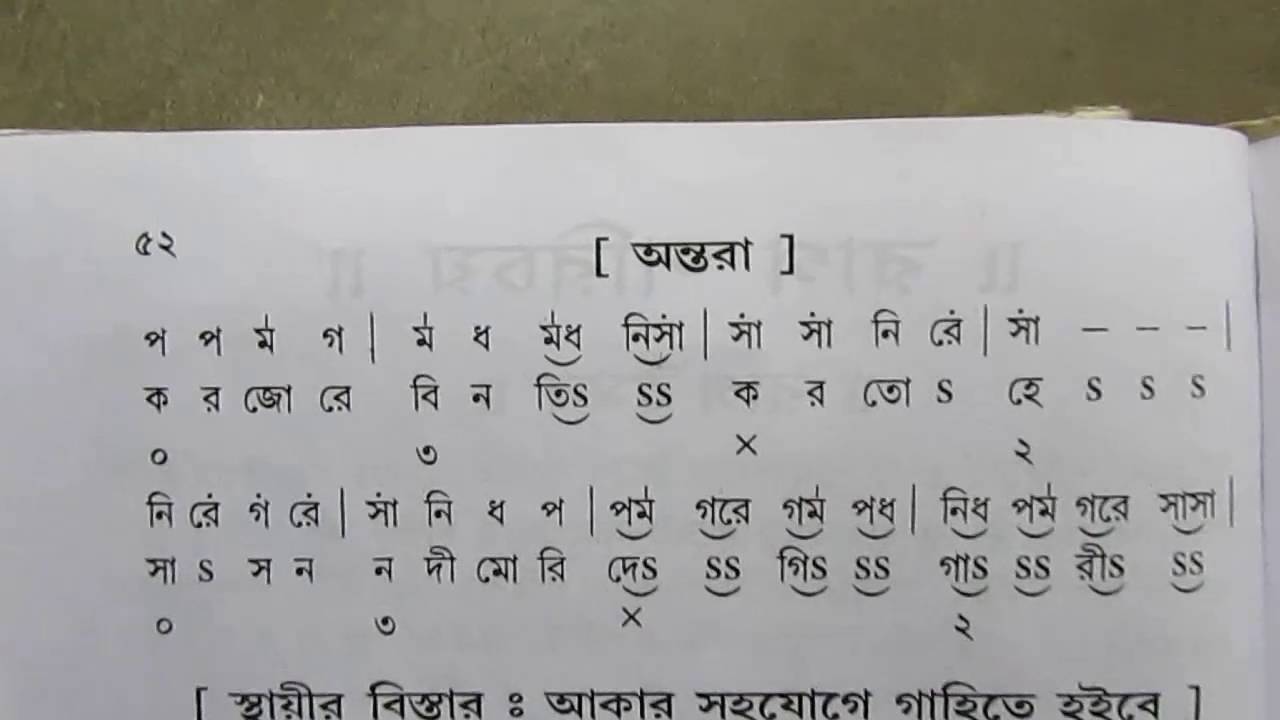 ৫২
[ অন্তরা ]
প প ম॑ গ | ম॑ ধ ম॑ধ নির্সা | র্সা র্সা নি র্রে | র্সা – – – |
ক র জো রে বি ন তিS SS ক র তো S হে S S S
০ ৩ × ২
নি র্রে র্গ র্রে | র্সা নি ধ প | পম॑ গরে গম॑ পধ | নিধ পম॑ গরে সাসা |
সা S স ন ন দী মো রি দেS SS গিS SS গাS SS রীS SS
০ ৩ × ২
[ স্থায়ীর বিস্তার : আকার সহযোগে গাহিতে হইবে ]